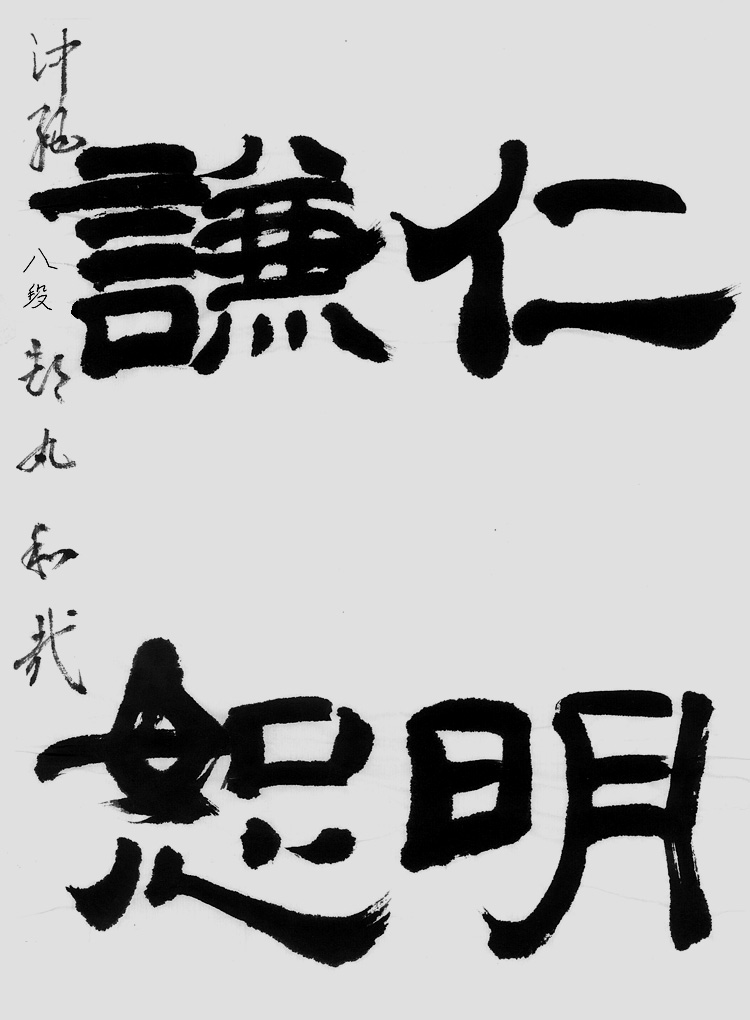 仁明
謙恕
沖縄 八段 都丸和哉